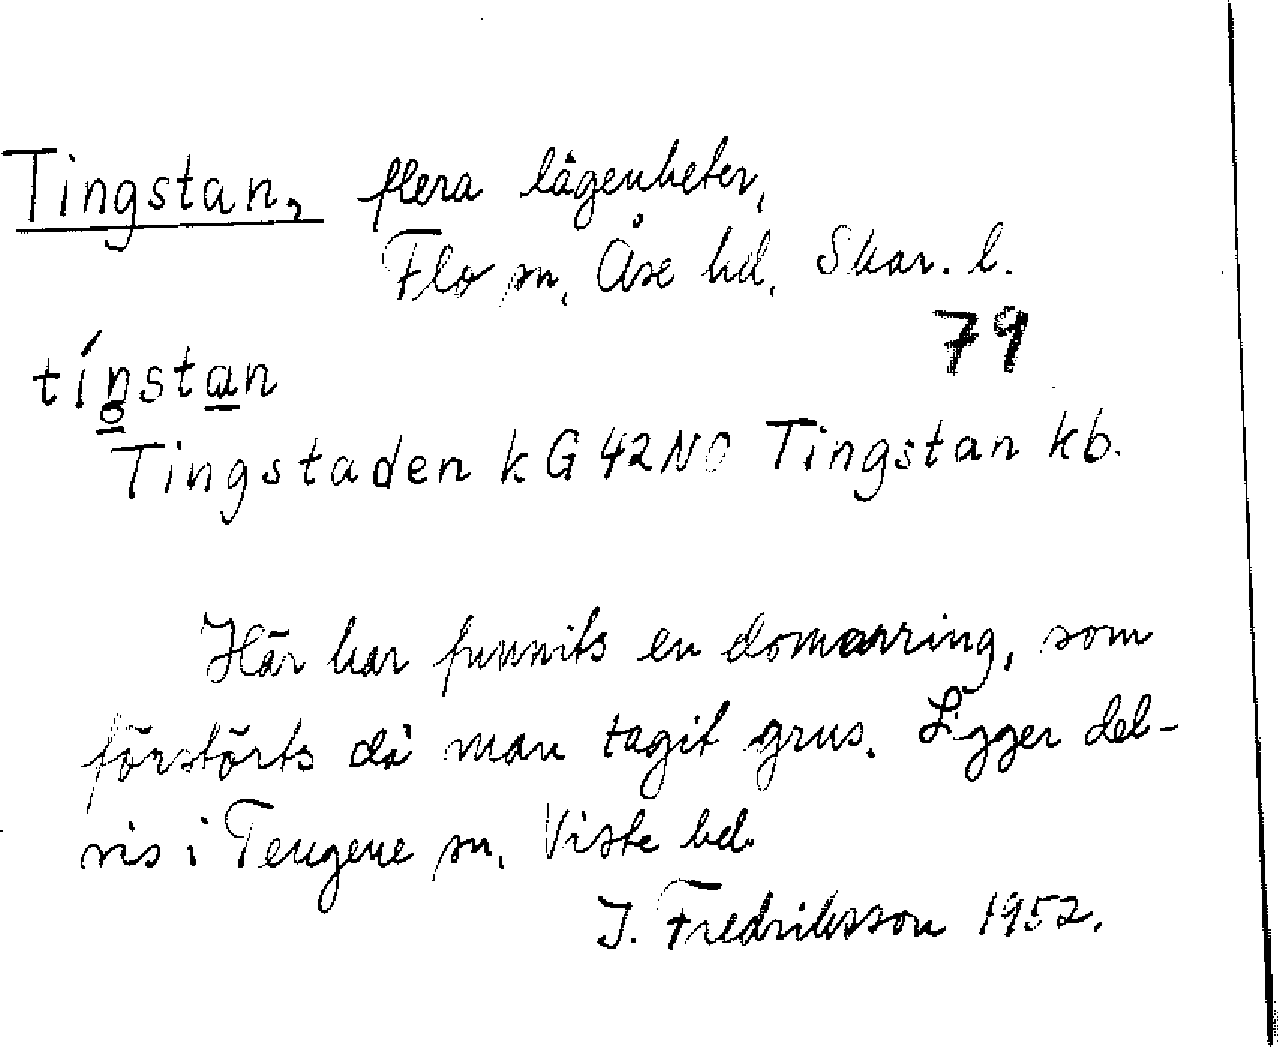 Tingstan, flera lägenheter,
Flo sn, Åse hd, Skar. l.
79
tín̥stan
Tingstaden k G 42 NO Tingstan kb.
Här har funnits en domarring, som
förstörts då man tagit grus. Ligger del-
vis i Tengene sn, Viste hd.
J. Fredriksson 1952.